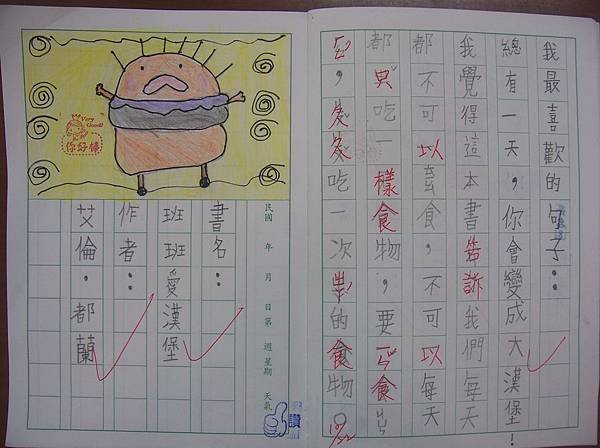 我最喜歡的句子：
總有一天，你會變成大漢堡！
我覺得這本書告訴我們每天
都不可以食，不可以每天
都吃一樣食物，要食
，吃一次的食物。
10/22
Very Good!
你好棒
民國 年 月 日第 週星期 天氣
讚
書名：
班班愛漢堡
作者：
艾倫，都蘭